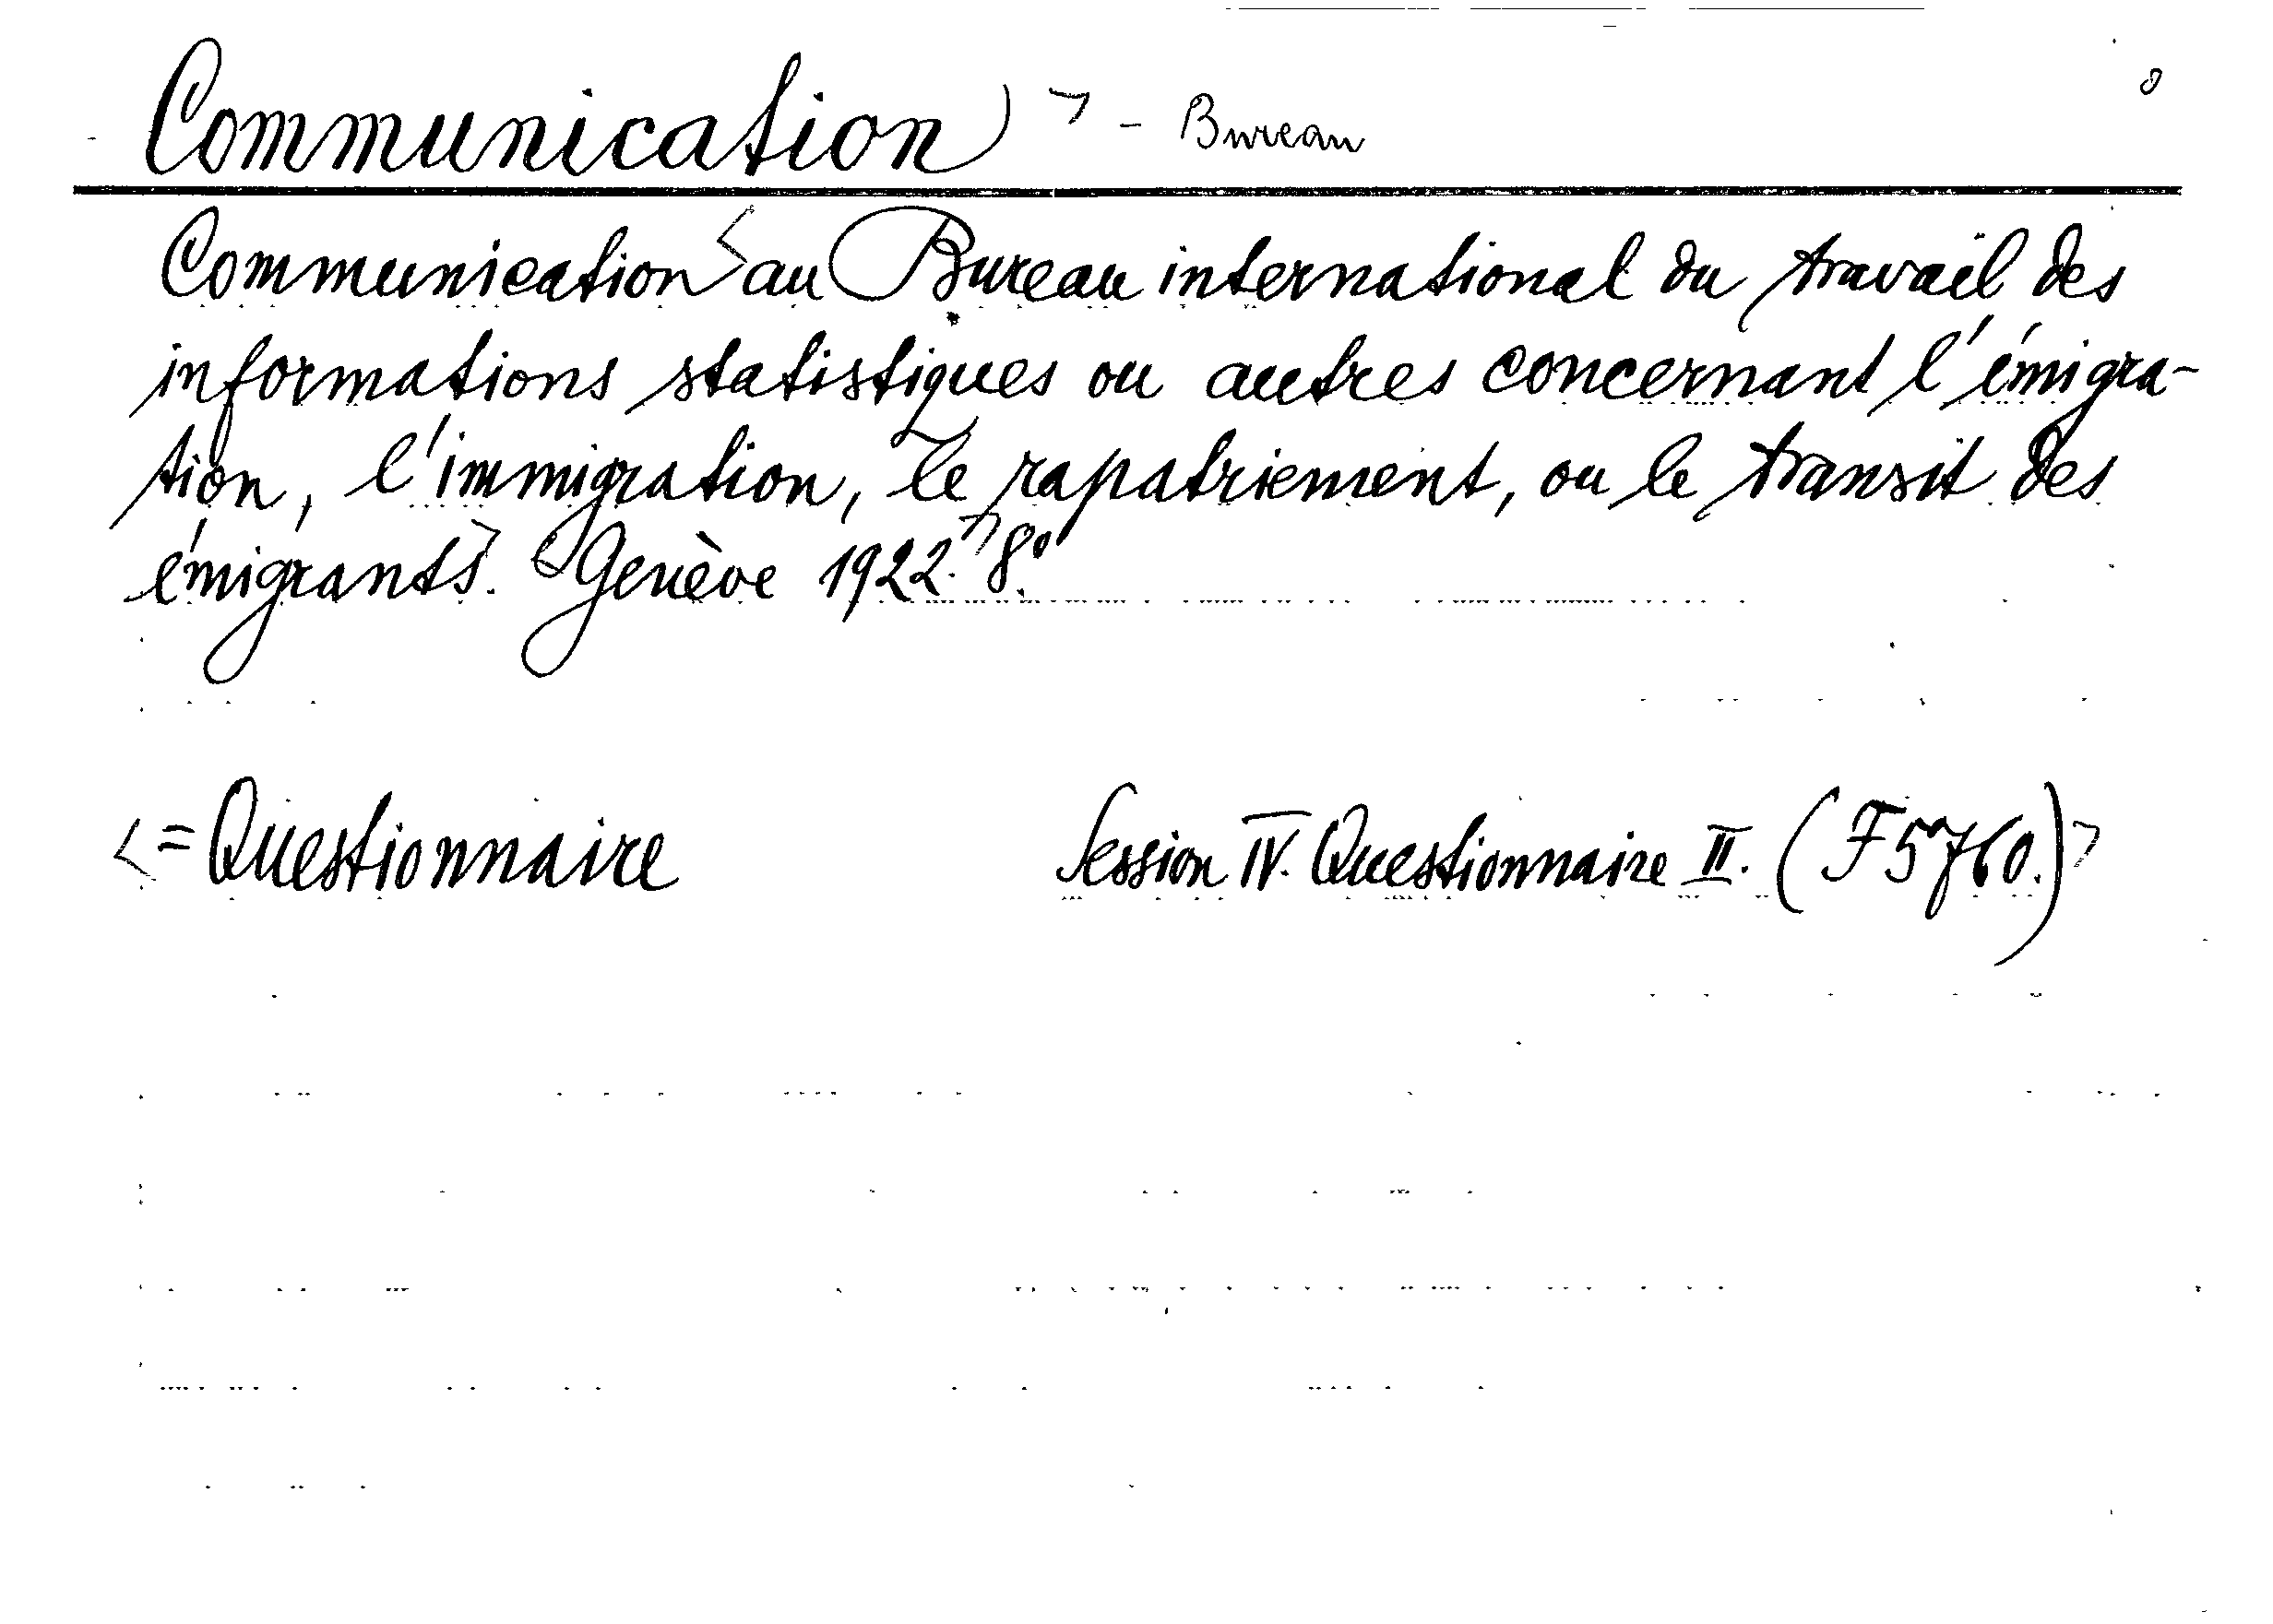 Communication > - Bureau
Communication < au Bureau international du travail des
informations statistiques ou autres concernant l'émigra-
tion, l'immigration, le rapatriement, ou le transit des
émigrants>. <Genève 1922.> 8°.
<= Questionnaire Session IV. Questionnaire II. (F 5760.)>